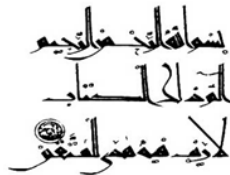 بسم الله الرحمن الرحيم
الم ذلك الكتاب
لا ريب فيه هدى للمتقين